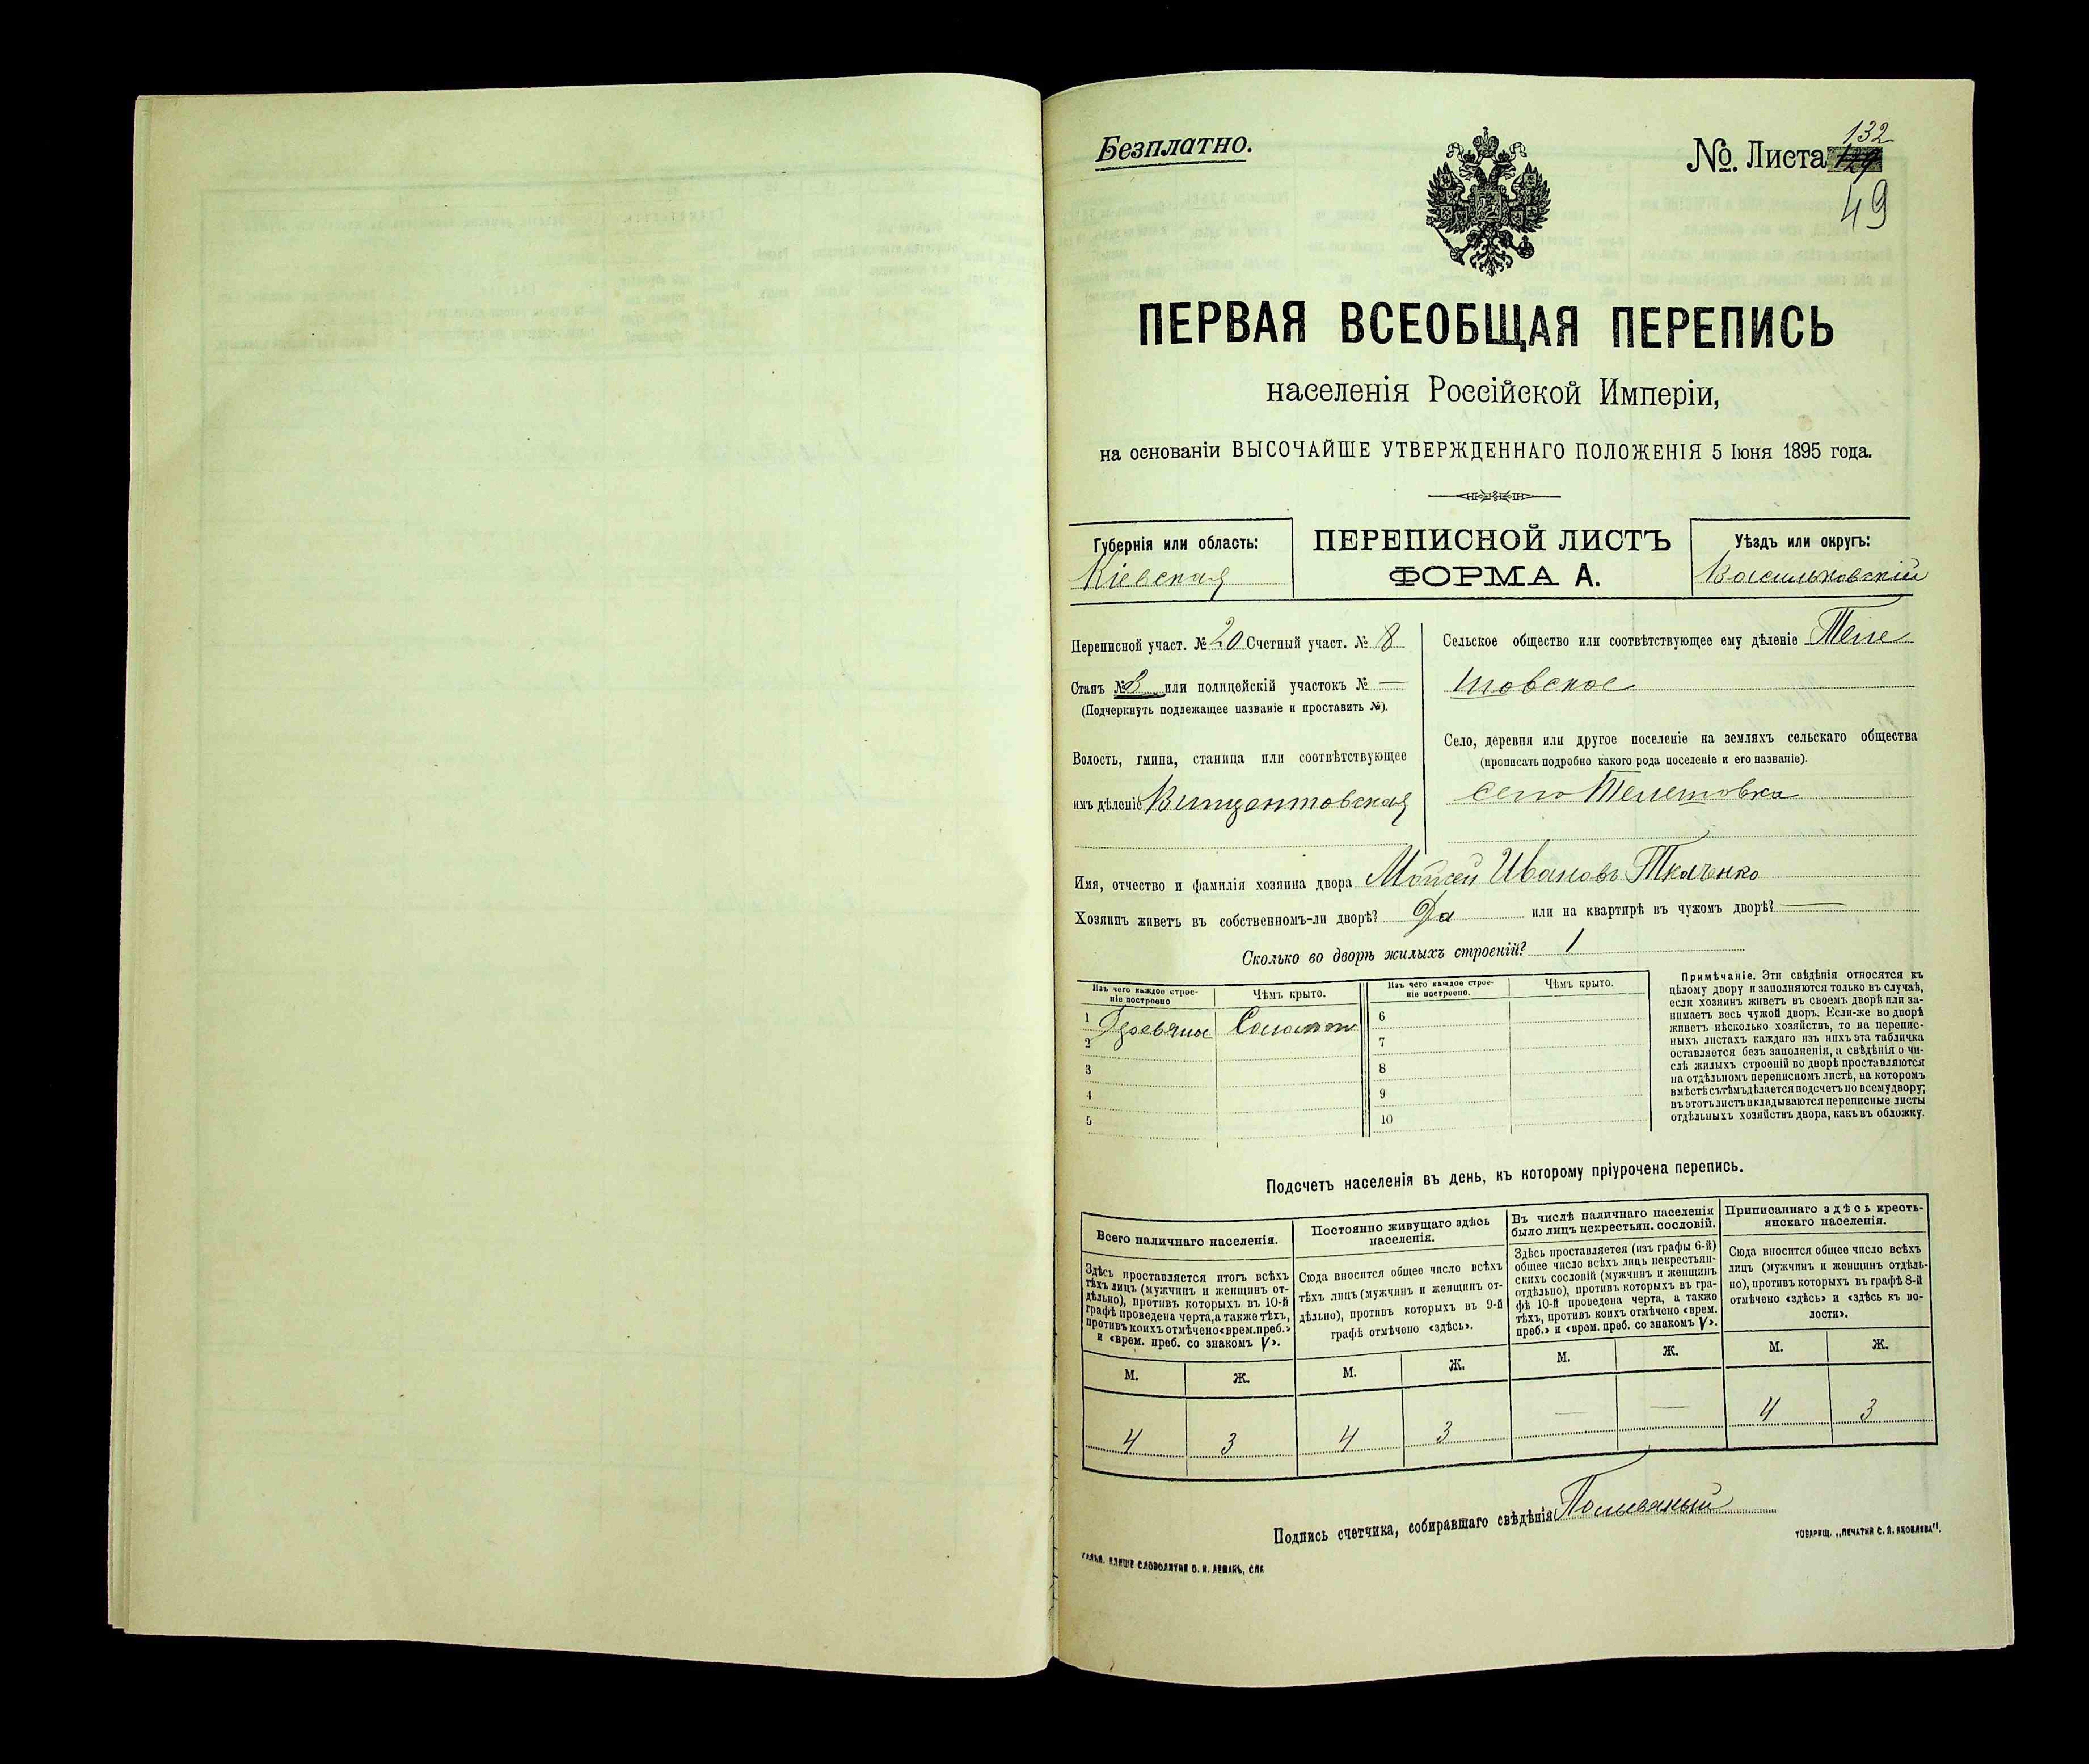 Безплатно.
132
№ Листа 129
49
ПЕРВАЯ ВСЕОБЩАЯ ПЕРЕПИСЬ
населенія Россійской Имперіи,
на основаніи ВЫСОЧАЙШЕ УТВЕРЖДЕННАГО ПОЛОЖЕНІЯ 5 Іюня 1895 года.
Губернія или область:
Кіевская
ПЕРЕПИСНОЙ ЛИСТЪ
ФОРМА А.
Уѣздъ или округъ:
Васильковскій
Переписной участ. № 20 Счетный участ. № 8
Станъ № 3 или полицейскій участокъ № —
(Подчеркнуть подлежащее названіе и проставить №).
Волость, гмина, станица или соотвѣтствующее
имъ дѣленіе Винцентовская
Сельское общество или соотвѣтствующее ему дѣленіе Теле
шовское
Село, деревня или другое поселеніе на земляхъ сельскаго общества
(прописать подробно какого рода поселеніе и его названіе).
село Телешовка
Имя, отчество и фамилія хозяина двора Мойсей Ивановъ Ткаченко
Хозяинъ живетъ въ собственномъ-ли дворѣ? Да или на квартирѣ въ чужомъ дворѣ? —
Сколько во дворѣ жилыхъ строеній? 1
Изъ чего каждое строе-
ніе построено
Чѣмъ крыто.
Изъ чего каждое строе-
ніе построено.
Чѣмъ крыто.
1 6
2 7
3 8
4 9
5 10
Примѣчаніе. Эти свѣдѣнія относятся къ
цѣлому двору и заполняются только въ случаѣ,
если хозяинъ живетъ въ своемъ дворѣ или за-
нимаетъ весь чужой дворъ. Если-же во дворѣ
живетъ нѣсколько хозяйствъ, то на перепис-
ныхъ листахъ каждаго изъ нихъ эта табличка
оставляется безъ заполненія, а свѣдѣнія о чи-
слѣ жилыхъ строеній во дворѣ проставляются
на отдѣльномъ переписномъ листѣ, на которомъ
вмѣстѣ съ тѣмъ дѣлается подсчетъ по всему двору;
въ этотъ листъ вкладываются переписные листы
отдѣльныхъ хозяйствъ двора, какъ въ обложку.
Подсчетъ населенія въ день, къ которому пріурочена перепись.
Всего наличнаго населенія.
Здѣсь проставляется итогъ всѣхъ
тѣхъ лицъ (мужчинъ и женщинъ от-
дѣльно), противъ которыхъ въ 10-й
графѣ проведена черта, а также тѣхъ,
противъ коихъ отмѣчено «врем. преб.»
и «врем. преб. со знакомъ V».
Постоянно живущаго здѣсь
населенія.
Сюда вносится общее число всѣхъ
тѣхъ лицъ (мужчинъ и женщинъ от-
дѣльно), противъ которыхъ въ 9-й
графѣ отмѣчено «здѣсь».
Въ числѣ наличнаго населенія
было лицъ некрестьян. сословій.
Здѣсь проставляется (изъ графы 6-й)
общее число всѣхъ лицъ некрестьян-
скихъ сословій (мужчинъ и женщинъ
отдѣльно), противъ которыхъ въ гра-
фѣ 10-й проведена черта, а также
тѣхъ, противъ коихъ отмѣчено «врем.
преб.» и «врем. преб. со знакомъ V».
Приписаннаго здѣсь кресть-
янскаго населенія.
Сюда вносится общее число всѣхъ
лицъ (мужчинъ и женщинъ отдѣль-
но), противъ которыхъ въ графѣ 8-й
отмѣчено «здѣсь» и «здѣсь къ во-
лости».
М. Ж. М. Ж. М. Ж. М. Ж.
4 3 4 3 — — 4 3
Подпись счетчика, собиравшаго свѣдѣнія
ТОВАРИЩ. „ПЕЧАТНЯ С. П. ЯКОВЛЕВА".
СЛОВОЛИТНИ О. И. ЛЕМАНЪ, СПБ